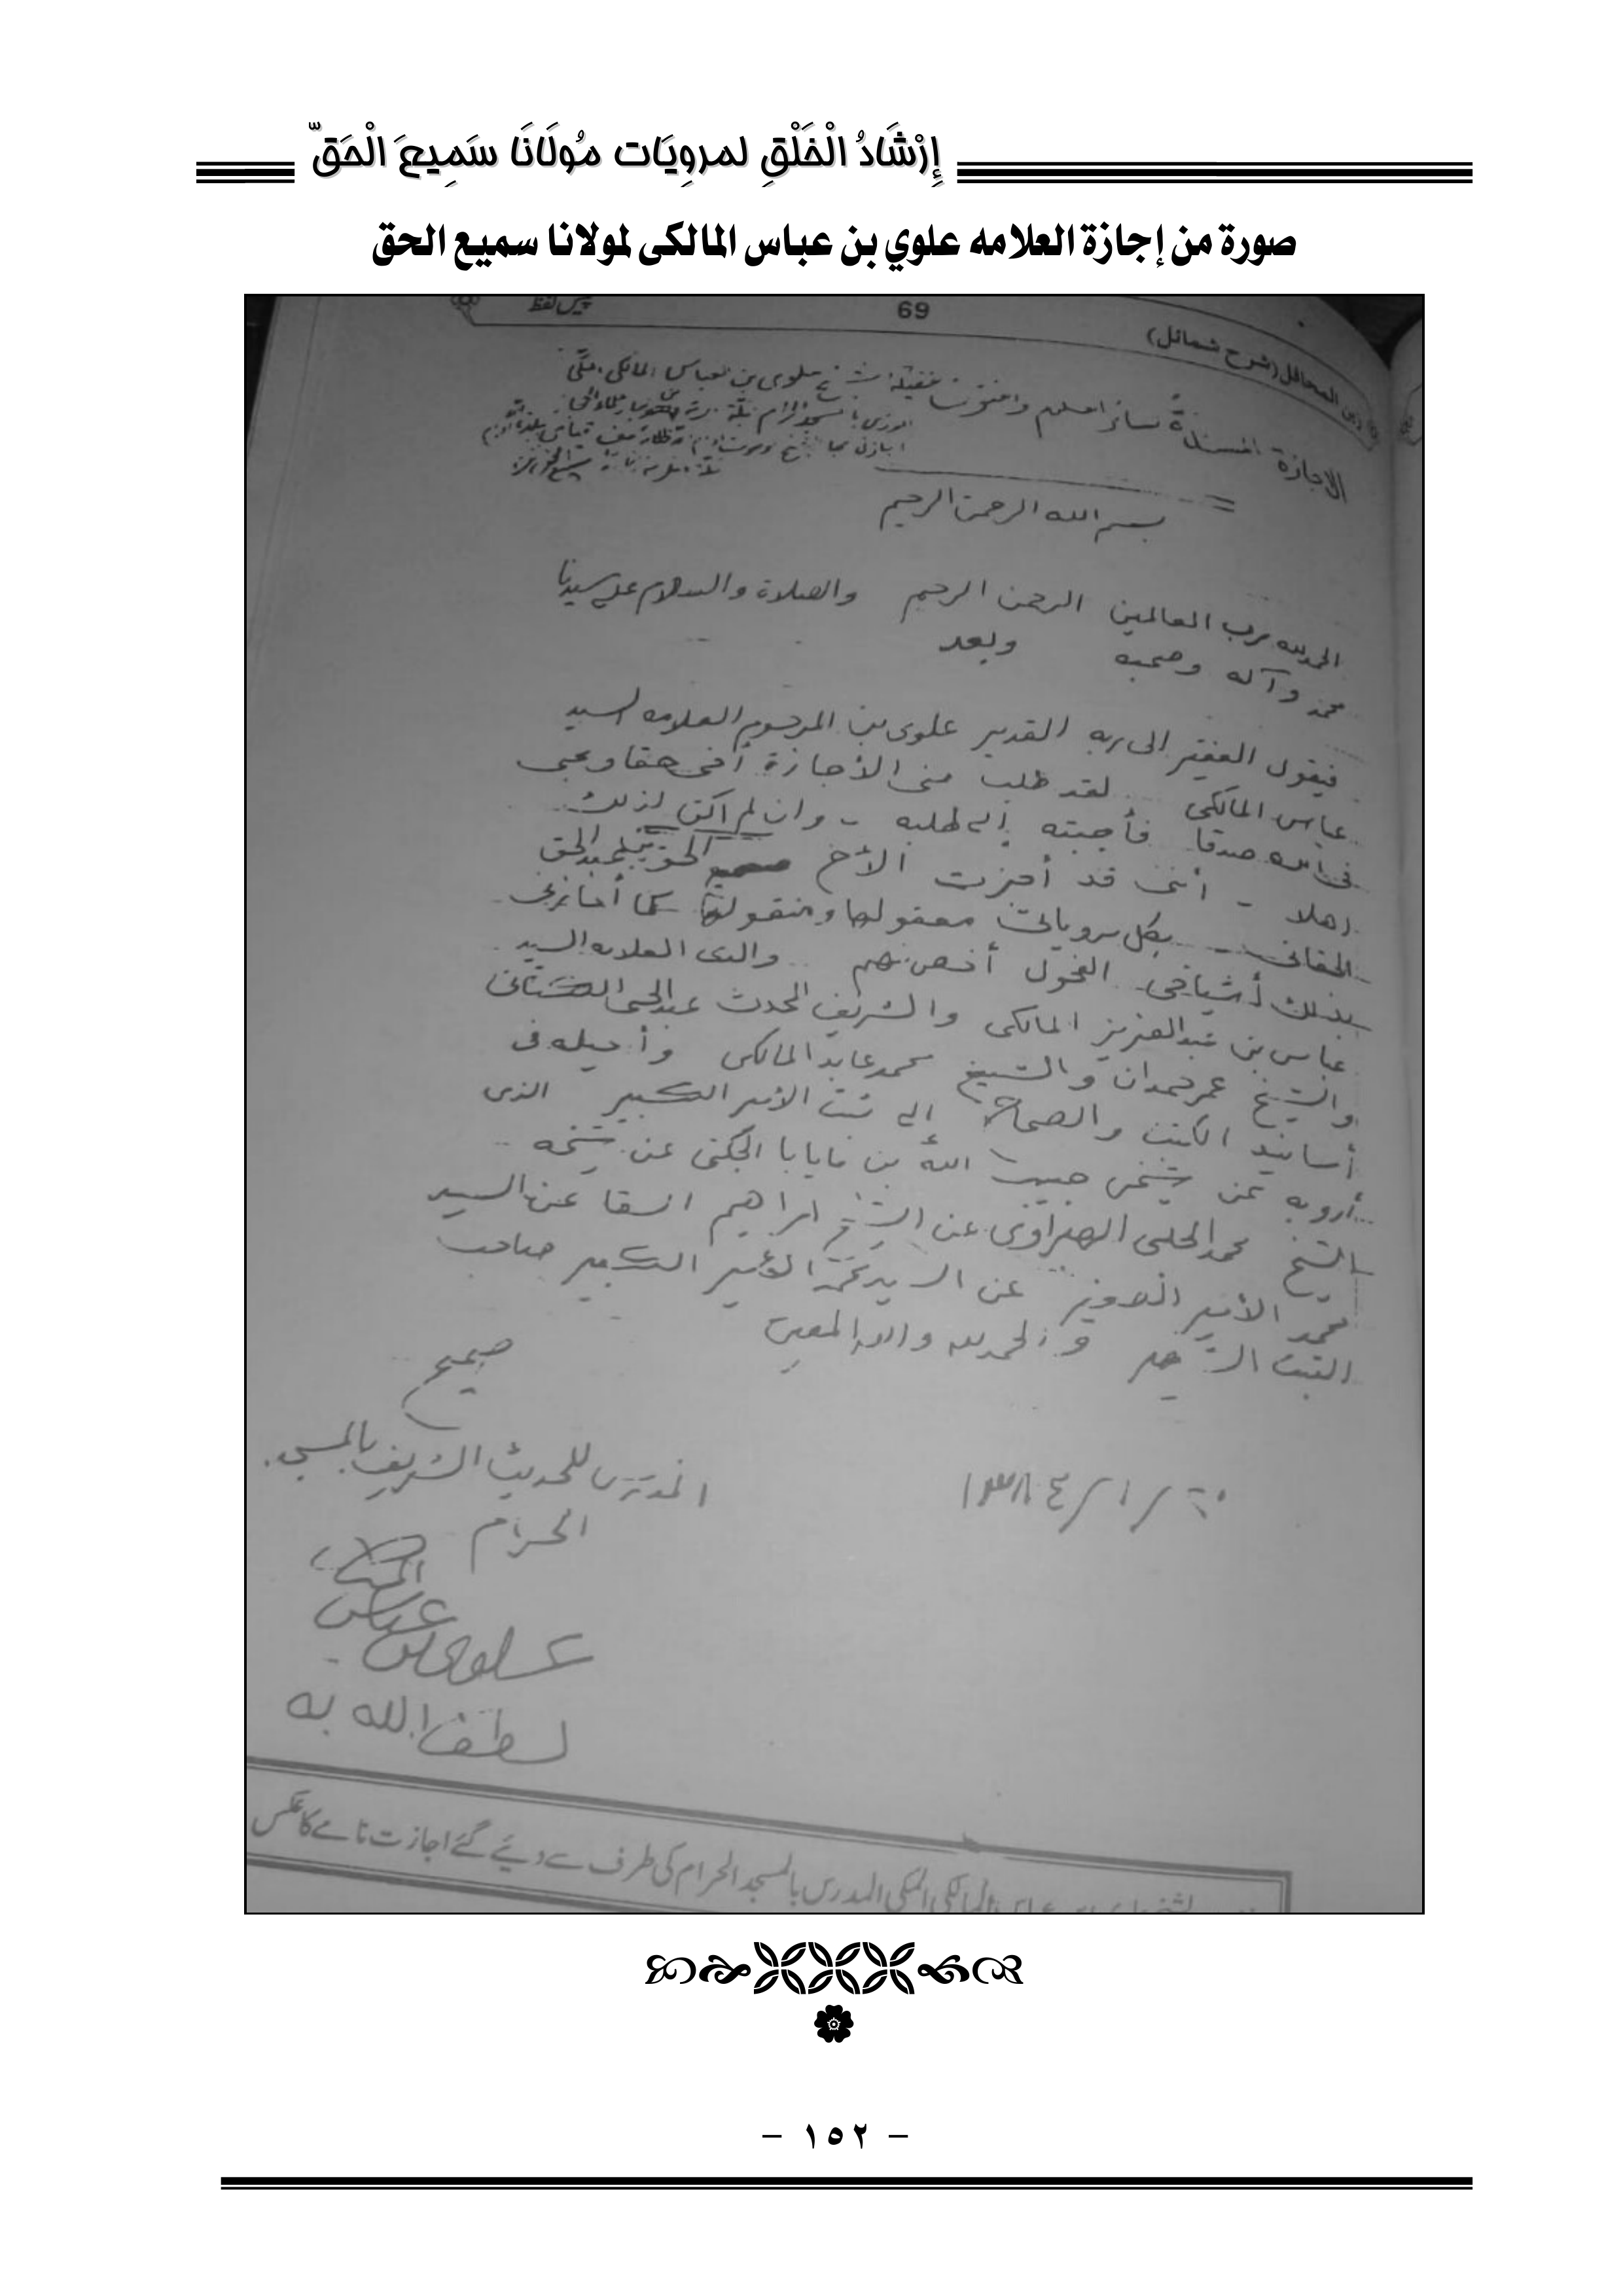 إِرْشَادُ الْخَلْقِ لمروِيَات مُولَانَا سَمِيعَ الْحَقّ
صورة من إجازة العلامه علوي بن عباس المالكى لمولانا سميع الحق
زين المحافل (شرح شمائل)
69
پیش لفظ
الاجازة المسندة لسائر العلوم والفنون من فضيلة الشيخ علوى بن عباس المالكى المكى
بسم الله الرحمن الرحيم
الحمد لله رب العالمين الرحمن الرحيم والصلاة والسلام على سيدنا
محمد وآله وصحبه وبعد
فيقول الفقير الى ربه القدير علوى بن المرحوم العلامه السيد
عباس المالكى لقد طلب منى الأجازة أخى حقا ومحبى
فى الله صدقا فأجبته إلى طلبه - وان لم اكن لذلك
اهلا - أننى قد أجزت الأخ سميع الحق بن عبد الحق
الحقانى - بكل مروياتى معقولها ومنقولها كما أجازنى
بذلك أشياخى الفحول أخص منهم والدى العلامه السيد
عباس بن عبد العزيز المالكى والشريف المحدث عبد الحى الكتانى
والشيخ عمر حمدان والشيخ محمد عابد المالكى وأحيله فى
أسانيد الكتب والصحاح الى ثبت الأمير الكبير الذى
أرويه عن شيخى حبيب الله بن مايابا الجكنى عن شيخه
الشيخ محمد الحلبى الهبراوى عن الشيخ ابراهيم السقا عن السيد
محمد الأمير الصغير عن السيد محمد الأمير الكبير صاحب
الثبت الشهير والحمد لله والله المعين
صحيح
المدرس للحديث الشريف بالمسجد
الحرام
١٣٨٤/١/٢٠
المالكى
عباس
علوى بن
لطف الله به
المالكى المكى المدرس بالمسجد الحرام کی طرف سے دیئے گئے اجازت نامے کا عکس
- ١٥٢ -